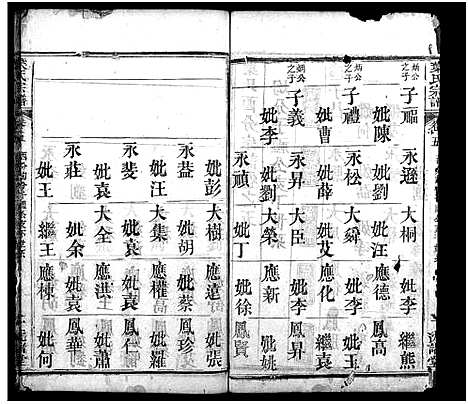 葉氏宗譜
炳公之子 子福 永遜 大桐 妣李 繼熊
妣陳 妣劉 妣汪 應德 鳳高
炳公之子 子禮 永松 大舜 妣李 妣玉
妣曹 妣薛 妣艾 應化 繼袁
炳公之子 子義 永昇 大臣 妣李 鳳昇
妣李 妣劉 大榮 應新 妣姚
永禎 妣丁 妣徐 鳳賢
妣彭 大樹 應遠 妣張
永益 妣胡 妣蔡 鳳珍
妣汪 大集 應權 妣羅
永斐 妣袁 妣袁 鳳高
妣袁 大全 應洪 妣蕭
永莊 妣余 妣袁 鳳華
妣王 繼王 應棟 妣何